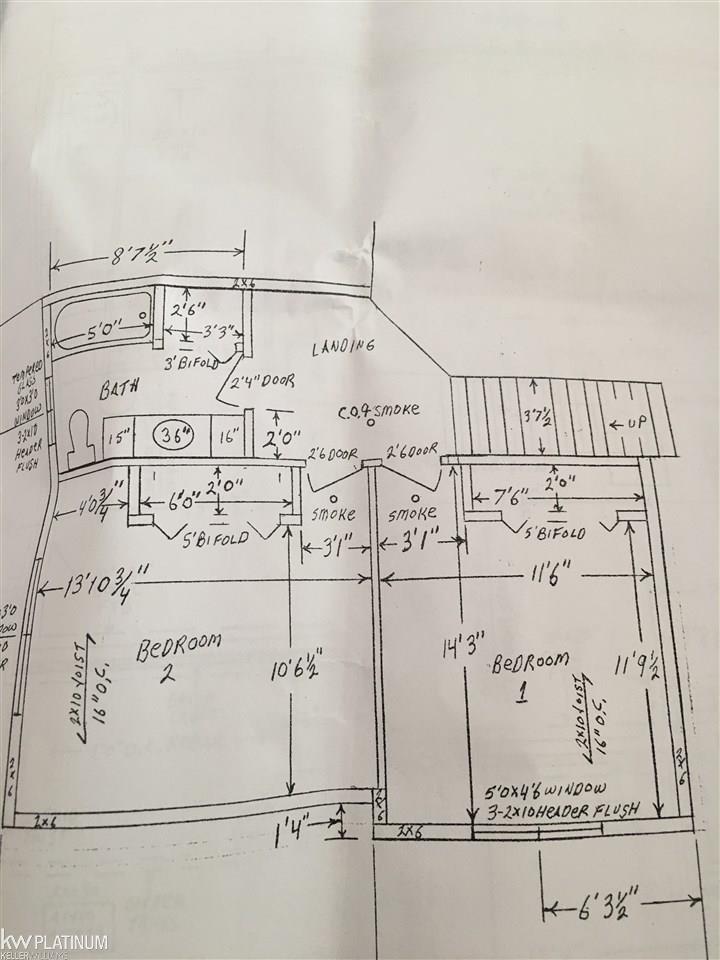 8'7½"
2x6
2'6"
5'0"
3'3"
3' BIFOLD
LANDING
TEMPERED
GLASS
WINDOW
3-2x10
HEADER
FLUSH
2x6
BATH
2'4" DOOR
C.O. & SMOKE
3'7½
← UP
15"
36"
16"
2'0"
2'6 DOOR
2'6 DOOR
4'0¾"
6'0"
2'0"
SMOKE
SMOKE
7'6"
2'0"
5' BIFOLD
3'1"
3'1"
5' BIFOLD
13'10¾"
11'6"
BEDROOM
2
10'6½"
14'3"
BEDROOM
1
11'9½
2x10 JOIST
16" O.C.
2x10 JOIST
16" O.C.
2x6
2x6
5'0x4'6 WINDOW
3-2x10 HEADER FLUSH
2x6
2x6
1'4"
2x6
6'3½"
kw PLATINUM
KELLERWILLIAMS